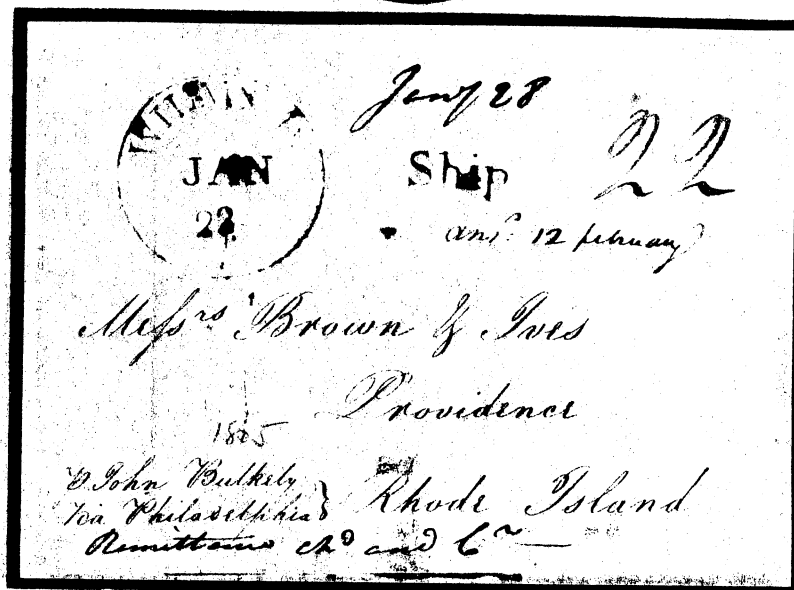 Jany 28
JAN
22
Ship
22
ansd. 12 february
Messrs Brown & Ives
Providence
1805
John Bulkely
via Philadelphia
Rhode Island
and